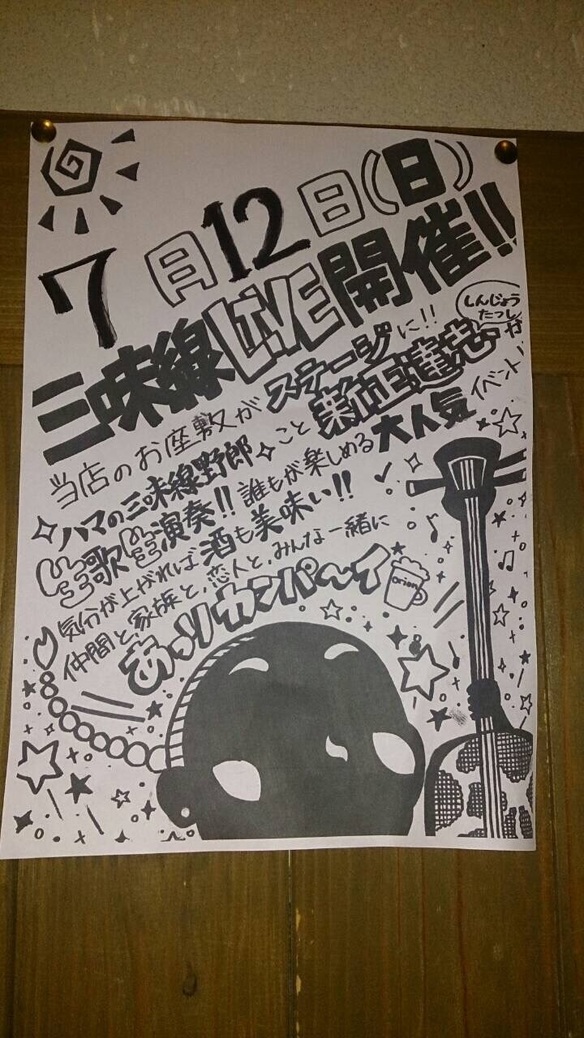 7月12日(日)
三味線LiVE開催!!
当店のお座敷がステージに!!
しんじょう
たつし
ハマの三味線野郎こと達志が
生歌生演奏!!誰もが楽しめる大人気イベント!
気分が上がれば酒も美味い!!
仲間と、家族と、恋人と、みんな一緒に
あっりカンパ〜イ
Orion